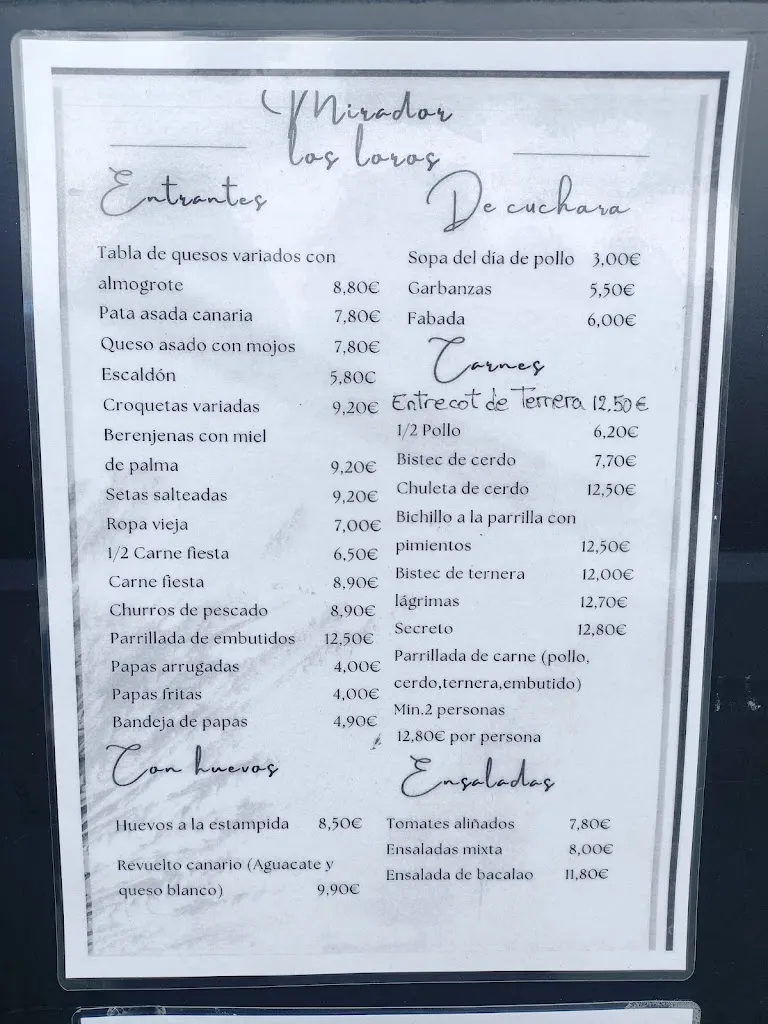 Mirador
los loros
Entrantes
Tabla de quesos variados con
almogrote 8,80€
Pata asada canaria 7,80€
Queso asado con mojos 7,80€
Escaldón 5,80€
Croquetas variadas 9,20€
Berenjenas con miel
de palma 9,20€
Setas salteadas 9,20€
Ropa vieja 7,00€
1/2 Carne fiesta 6,50€
Carne fiesta 8,90€
Churros de pescado 8,90€
Parrillada de embutidos 12,50€
Papas arrugadas 4,00€
Papas fritas 4,00€
Bandeja de papas 4,90€
Con huevos
Huevos a la estampida 8,50€
Revuelto canario (Aguacate y
queso blanco) 9,90€
De cuchara
Sopa del día de pollo 3,00€
Garbanzas 5,50€
Fabada 6,00€
Carnes
Entrecot de Ternera 12.50€
1/2 Pollo 6,20€
Bistec de cerdo 7,70€
Chuleta de cerdo 12,50€
Bichillo a la parrilla con
pimientos 12,50€
Bistec de ternera 12,00€
lágrimas 12,70€
Secreto 12,80€
Parrillada de carne (pollo,
cerdo,ternera,embutido)
Min.2 personas
12,80€ por persona
Ensaladas
Tomates aliñados 7,80€
Ensaladas mixta 8,00€
Ensalada de bacalao 11,80€